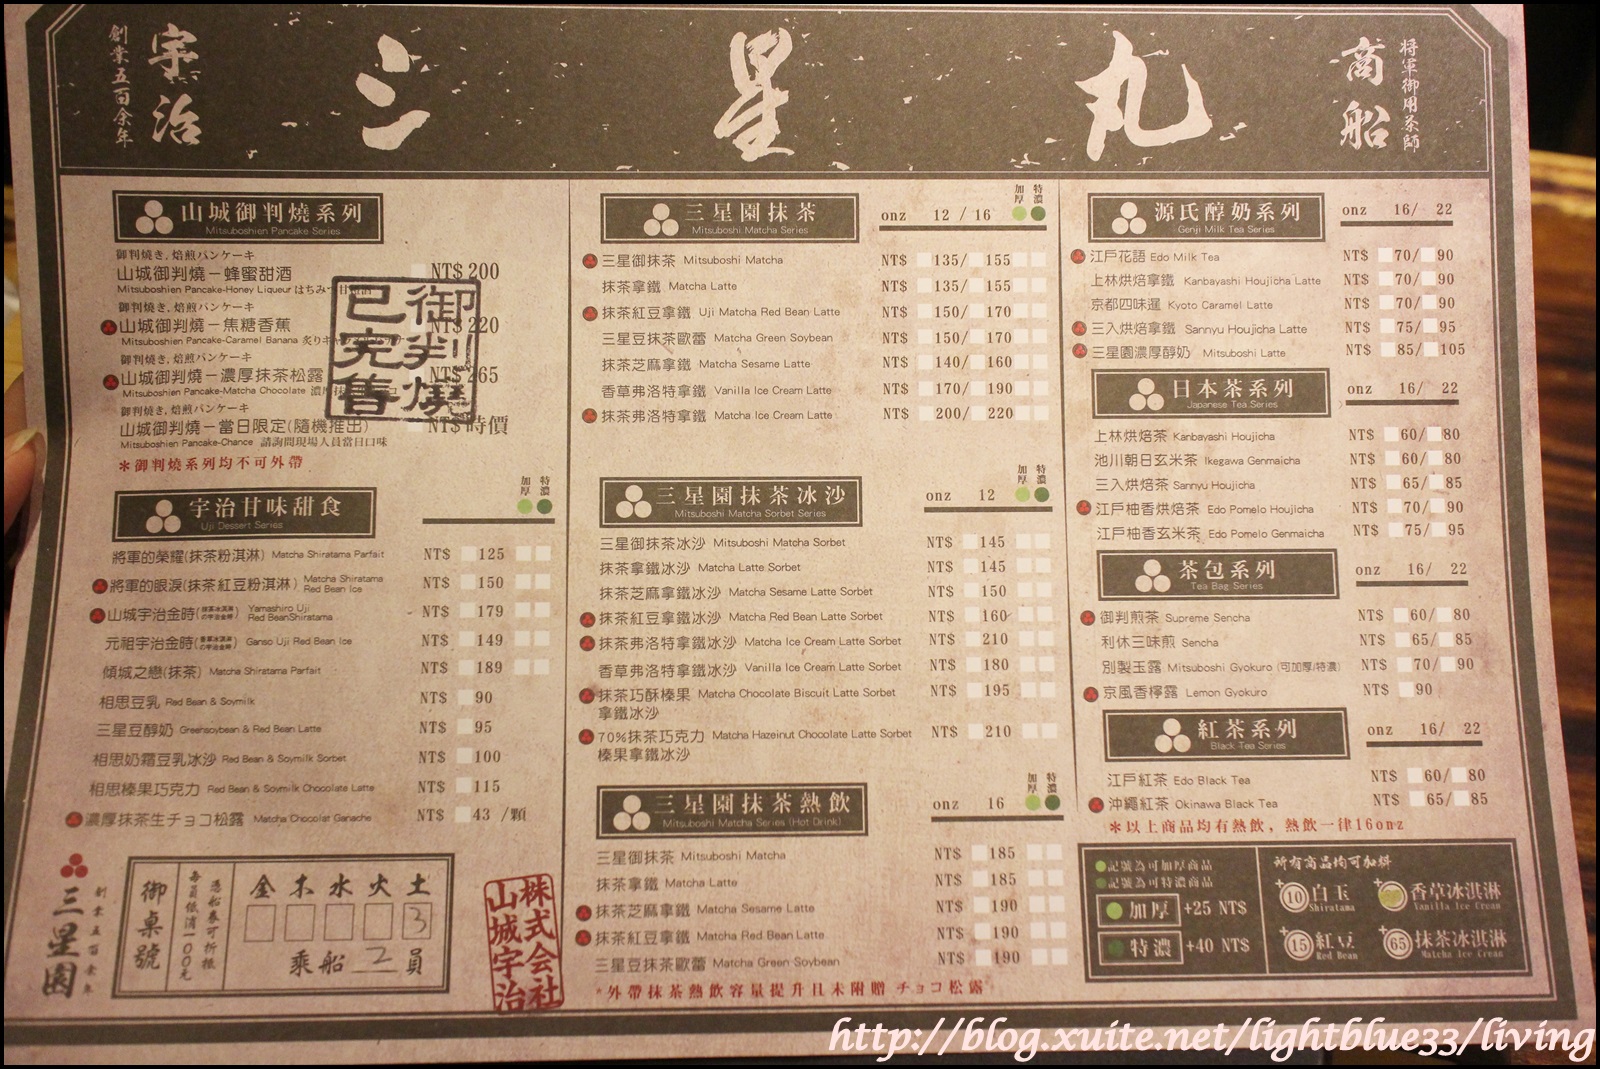 創業五百余年
宇治
三星丸
商船
將軍御用茶師
山城御判燒系列
Mitsuboshien Pancake Series
御判燒き, 焙煎パンケーキ
山城御判燒－蜂蜜甜酒 NT$ 200
Mitsuboshien Pancake-Honey Liqueur はちみつ甘
御判燒き, 焙煎パンケーキ
山城御判燒－焦糖香蕉 NT$ 220
Mitsuboshien Pancake-Caramel Banana 炙りキャラメルバナナ
御判燒き, 焙煎パンケーキ
山城御判燒－濃厚抹茶松露 NT$ 265
Mitsuboshien Pancake-Matcha Chocolate 濃厚抹
御判燒き, 焙煎パンケーキ
山城御判燒－當日限定(隨機推出) NT$ 時價
Mitsuboshien Pancake-Chance 請詢問現場人員當日口味
＊御判燒系列均不可外帶
御判燒
已完售
宇治甘味甜食
Uji Dessert Series
加厚 特濃
將軍的榮耀(抹茶粉淇淋) Matcha Shiratama Parfait NT$ 125
將軍的眼淚(抹茶紅豆粉淇淋) Matcha Shiratama Red Bean Ice NT$ 150
山城宇治金時(抹茶冰淇淋の宇治金時) Yamashiro Uji Red BeanShiratama NT$ 179
元祖宇治金時(香草冰淇淋の宇治金時) Ganso Uji Red Bean Ice NT$ 149
傾城之戀(抹茶) Matcha Shiratama Parfait NT$ 189
相思豆乳 Red Bean & Soymilk NT$ 90
三星豆醇奶 Greensoybean & Red Bean Latte NT$ 95
相思奶霜豆乳冰沙 Red Bean & Soymilk Sorbet NT$ 100
相思榛果巧克力 Red Bean & Soymilk Chocolate Latte NT$ 115
濃厚抹茶生チョコ松露 Matcha Chocolat Ganache NT$ 43 /顆
創業五百余年
三星園
御桌號
每員低消100元
憑船券可折抵
金 木 水 火 土
3
乘船 2 員
株式会社
山城宇治
三星園抹茶
Mitsuboshi Matcha Series
onz 12 / 16
加厚 特濃
三星御抹茶 Mitsuboshi Matcha NT$ 135/ 155
抹茶拿鐵 Matcha Latte NT$ 135/ 155
抹茶紅豆拿鐵 Uji Matcha Red Bean Latte NT$ 150/ 170
三星豆抹茶歐蕾 Matcha Green Soybean NT$ 150/ 170
抹茶芝麻拿鐵 Matcha Sesame Latte NT$ 140/ 160
香草弗洛特拿鐵 Vanilla Ice Cream Latte NT$ 170/ 190
抹茶弗洛特拿鐵 Matcha Ice Cream Latte NT$ 200/ 220
三星園抹茶冰沙
Mitsuboshi Matcha Sorbet Series
onz 12
加厚 特濃
三星御抹茶冰沙 Mitsuboshi Matcha Sorbet NT$ 145
抹茶拿鐵冰沙 Matcha Latte Sorbet NT$ 145
抹茶芝麻拿鐵冰沙 Matcha Sesame Latte Sorbet NT$ 150
抹茶紅豆拿鐵冰沙 Matcha Red Bean Latte Sorbet NT$ 160
抹茶弗洛特拿鐵冰沙 Matcha Ice Cream Latte Sorbet NT$ 210
香草弗洛特拿鐵冰沙 Vanilla Ice Cream Latte Sorbet NT$ 180
抹茶巧酥榛果 Matcha Chocolate Biscuit Latte Sorbet NT$ 195
拿鐵冰沙
70%抹茶巧克力 Matcha Hazeinut Chocolate Latte Sorbet NT$ 210
榛果拿鐵冰沙
三星園抹茶熱飲
Mitsuboshi Matcha Series (Hot Drink)
onz 16
加厚 特濃
三星御抹茶 Mitsuboshi Matcha NT$ 185
抹茶拿鐵 Matcha Latte NT$ 185
抹茶芝麻拿鐵 Matcha Sesame Latte NT$ 190
抹茶紅豆拿鐵 Matcha Red Bean Latte NT$ 190
三星豆抹茶歐蕾 Matcha Green Soybean NT$ 190
*外帶抹茶熱飲容量提升且未附贈 チョコ松露
源氏醇奶系列
Genji Milk Tea Series
onz 16/ 22
江戶花語 Edo Milk Tea NT$ 70/ 90
上林烘焙拿鐵 Kanbayashi Houjicha Latte NT$ 70/ 90
京都四味暹 Kyoto Caramel Latte NT$ 70/ 90
三入烘焙拿鐵 Sannyu Houjicha Latte NT$ 75/ 95
三星園濃厚醇奶 Mitsuboshi Latte NT$ 85/ 105
日本茶系列
Japanese Tea Series
onz 16/ 22
上林烘焙茶 Kanbayashi Houjicha NT$ 60/ 80
池川朝日玄米茶 Ikegawa Genmaicha NT$ 60/ 80
三入烘焙茶 Sannyu Houjicha NT$ 65/ 85
江戶柚香烘焙茶 Edo Pomelo Houjicha NT$ 70/ 90
江戶柚香玄米茶 Edo Pomelo Genmaicha NT$ 75/ 95
茶包系列
Tea Bag Series
onz 16/ 22
御判煎茶 Supreme Sencha NT$ 60/ 80
利休三味煎 Sencha NT$ 65/ 85
別製玉露 Mitsuboshi Gyokuro (可加厚/特濃) NT$ 70/ 90
京風香檸露 Lemon Gyokuro NT$ 90
紅茶系列
Black Tea Series
onz 16/ 22
江戶紅茶 Edo Black Tea NT$ 60/ 80
沖繩紅茶 Okinawa Black Tea NT$ 65/ 85
＊以上商品均有熱飲, 熱飲一律16onz
記號為可加厚商品
記號為可特濃商品
加厚 +25 NT$
特濃 +40 NT$
所有商品均可加料
+10 白玉 Shiratama
香草冰淇淋 Vanilla Ice Cream
+15 紅豆 Red Bean
+65 抹茶冰淇淋 Matcha Ice Cream
http://blog.xuite.net/lightblue33/living